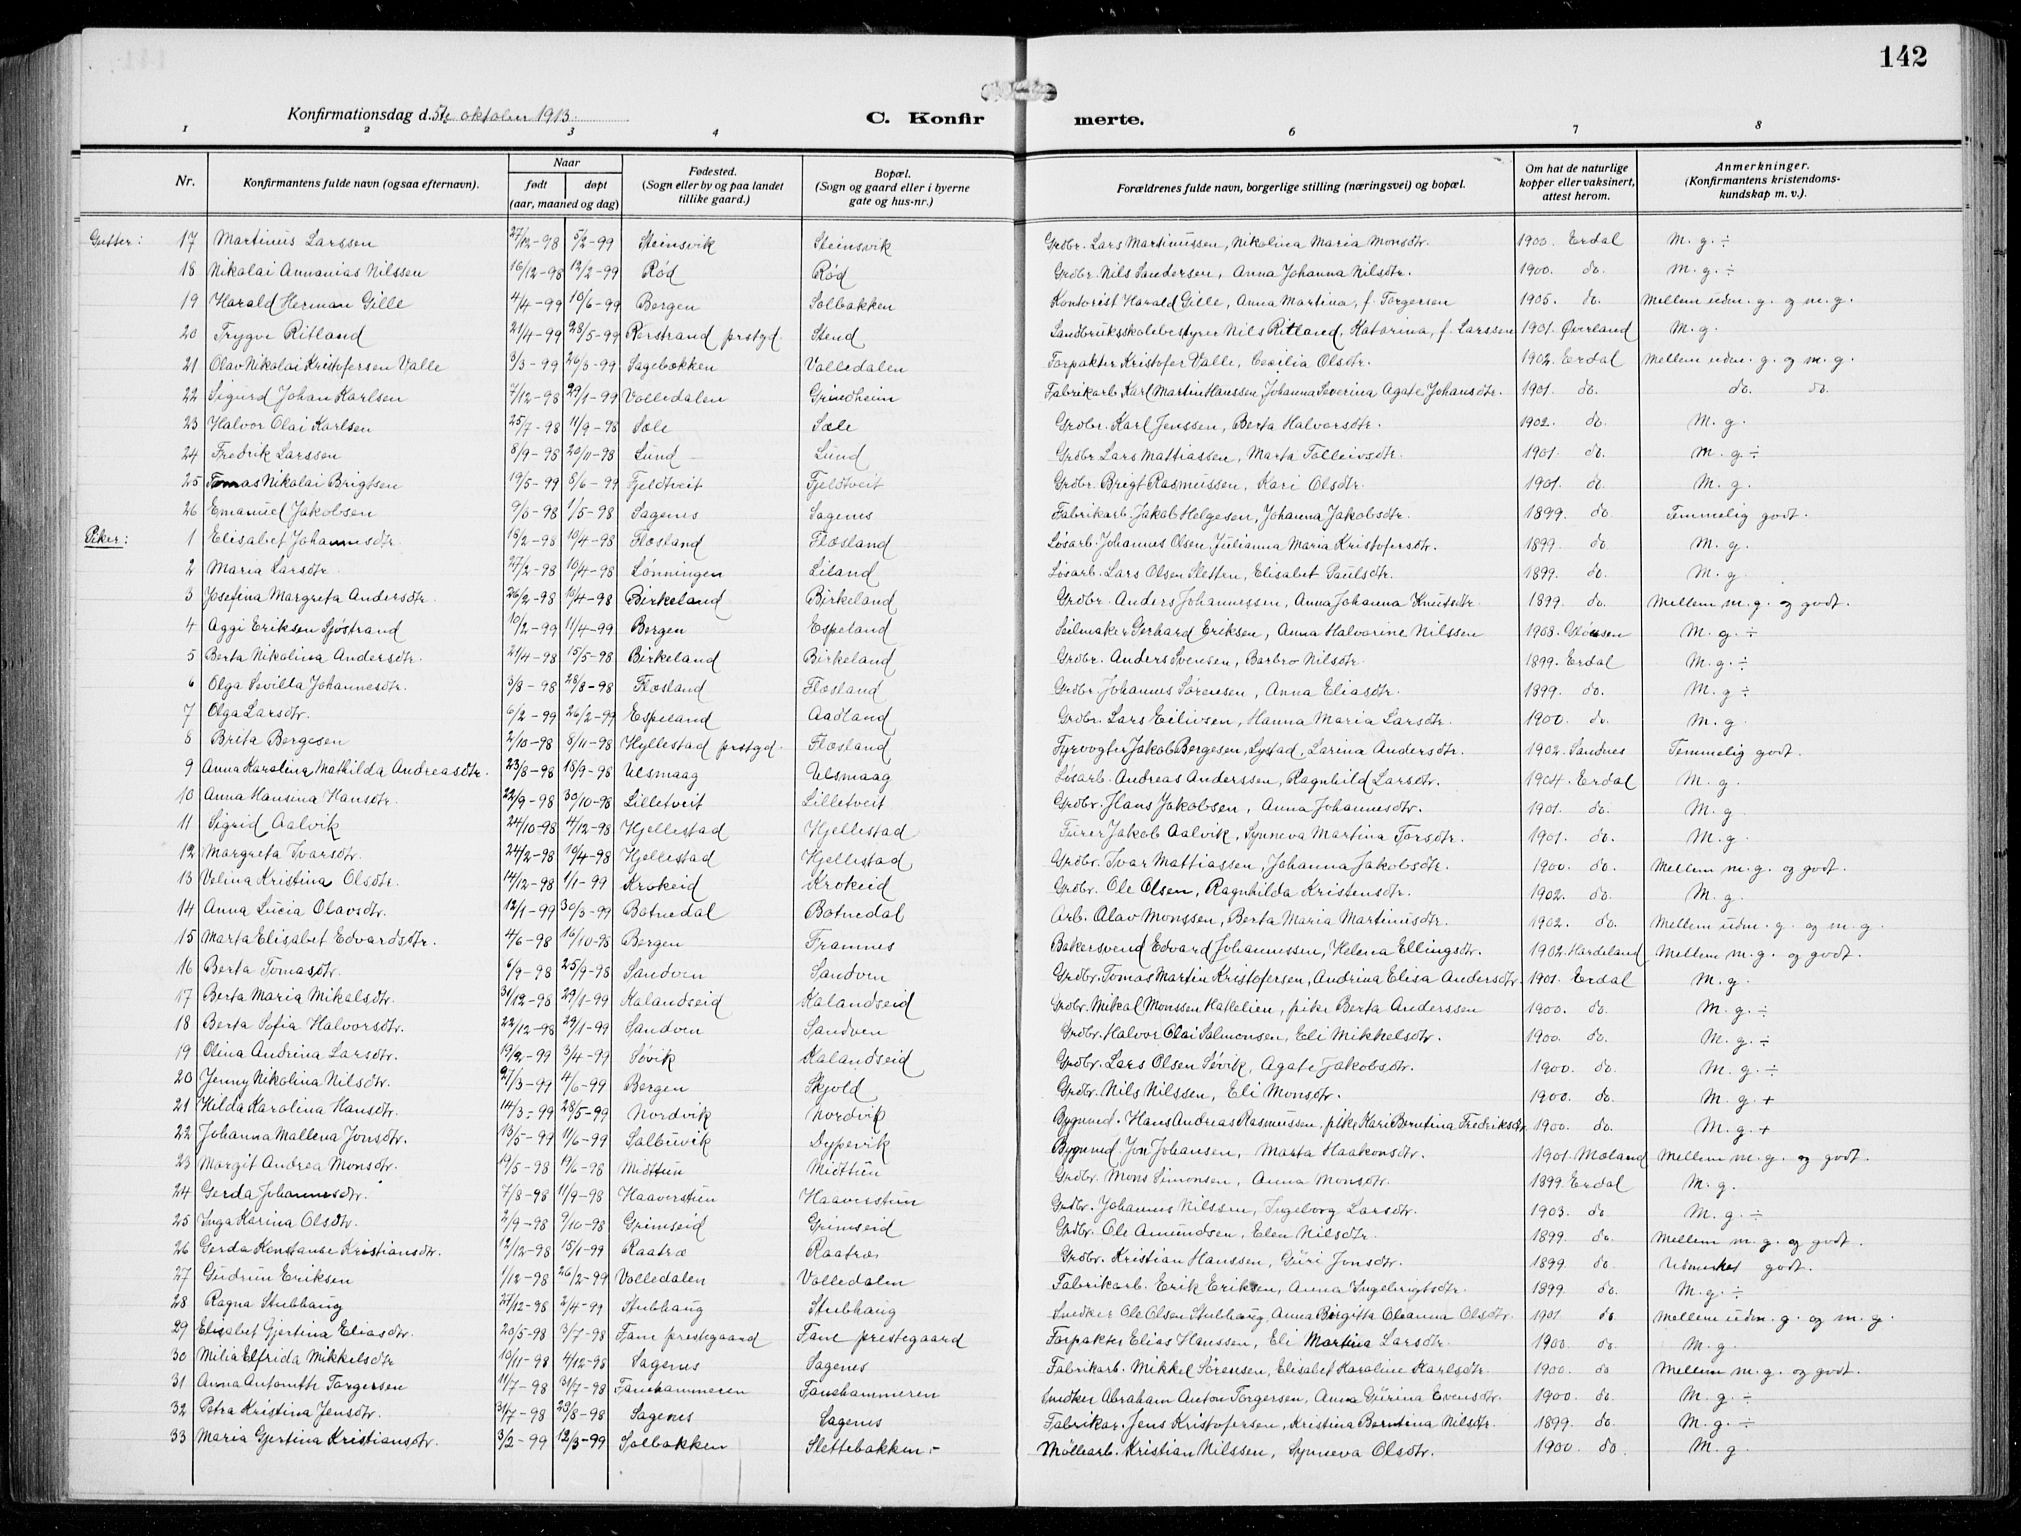 142
Konfirmationsdag d. 5te oktober 1913. C. Konfirmerte.
1 2 3 4 6 7 8
Nr. Konfirmantens fulde navn (ogsaa efternavn). Naar født døpt (aar, maaned og dag) Fødested. (Sogn eller by og paa landet tillike gaard.) Bopæl. (Sogn og gaard eller i byerne gate og hus-nr.) Forældrenes fulde navn, borgerlige stilling (næringsvei) og bopæl. Om hat de naturlige kopper eller vaksinert, attest herom. Anmerkninger. (Konfirmantens kristendoms-kundskap m. v.).
Gutter: 17 Martinus Larssen 27/12-98 5/2-99 Steinsvik Steinsvik Grdbr. Lars Martinussen, Nikolina Maria Monsdtr. 1900. Erdal M. g. ÷
18 Nikolai Annanias Nilssen 16/12-98 12/2-99 Rød Rød Grdbr. Nils Sandersen, Anna Johanna Nilsdtr. 1900. do. M. g. ÷
19 Harald Herman Gille 4/4-99 10/6-99 Bergen Solbakken Kontorist Harald Gille, Anna Martina, f. Torgersen 1905. do. Mellem udm. g. og m. g.
20 Trygve Ritland 21/4-99 28/5-99 Korstrand prstgd. Stend Landbruksskolebestyrer Nils Ritland, Katarina, f. Larssen 1901. Øverland M. g.
21 Olav Nikolai Kristofersen Valle 3/3-99 26/3-99 Sagebækken Valledalen Forpakter Kristofer Valle, Cecilia Olsdtr. 1902. Erdal Mellem udm. g. og m. g.
22 Sigurd Johan Karlsen 7/12-98 29/1-99 Volledalen Grindheim Fabrikarb. Karl Martin Hanssen, Johanna Severina Agate Johansdtr. 1901. do. do. do.
23 Halvor Olai Karlsen 25/7-98 11/9-98 Sæle Sæle Grdbr. Karl Jenssen, Berta Halvorsdtr. 1902. do. M. g.
24 Fredrik Larssen 8/9-98 20/11-98 Lund Lund Grdbr. Lars Mattiassen, Marta Tolleivsdtr. 1901. do. M. g. ÷
25 Tomas Nikolai Brigtsen 19/5-99 5/6-99 Fjeldtveit Fjeldtveit Grdbr. Brigt Rasmussen, Kari Olsdtr. 1901. do. M. g.
26 Emanuel Jakobsen 9/3-98 1/5-98 Sagenes Sagenes Fabrikarb. Jakob Helgesen, Johanna Jakobsdtr. 1899. do. Temmelig godt.
Piker: 1 Elisabet Johannesdtr. 16/2-98 10/4-98 Flæsland Flæsland Løsarb. Johannes Olsen, Julianna Maria Kristofersdtr. 1899. do. M. g.
2 Maria Larsdtr. 27/2-98 10/4-98 Lønningen Liland Løsarb. Lars Olsen Sletten, Elisabet Paulsdtr. 1899. do. M. g.
3 Josefina Margreta Andersdtr. 26/2-98 10/4-98 Birkeland Birkeland Grdbr. Anders Johannessen, Anna Johanna Knutsdtr. 1899. do. Mellem m. g. og godt.
4 Aggi Eriksen Sjöstrand 10/2-99 11/4-99 Bergen Espeland Seilmaker Gerhard Eriksen, Anna Halvorine Nilssen 1908. M. g. ÷
5 Berta Nikolina Andersdtr. 21/4-98 15/5-98 Birkeland Birkeland Grdbr. Anders Svensen, Barbro Nilsdtr. 1899. Erdal M. g. ÷
6 Olga Sevilla Johannesdtr. 3/8-98 28/8-98 Flæsland Flæsland Grdbr. Johannes Sørensen, Anna Eliasdtr. 1899. do. M. g. ÷
7 Olga Larsdtr. 6/2-99 26/2-99 Espeland Aadland Grdbr. Lars Eilivsen, Hanna Maria Larsdtr. 1900. do. M. g.
8 Brita Bergesen 2/10-98 8/11-98 Hyllestad prstgd. Flæsland Fyrvogter Jakob Bergesen, Lystad, Larina Andersdtr. 1902. Sandnes Temmelig godt.
9 Anna Karolina Mathilda Andreasdtr. 23/8-98 18/9-98 Ulsmaag Ulsmaag Løsarb. Andreas Anderssen, Ragnhild Larsdtr. 1904. Erdal M. g.
10 Anna Hansina Hansdtr. 22/9-98 30/10-98 Lilletveit Lilletveit Grdbr. Hans Jakobsen, Anna Johannesdtr. 1901. do. M. g.
11 Sigrid Aalvik 24/10-98 4/12-98 Hjellestad Hjellestad Furer Jakob Aalvik, Synneva Martina Torsdtr. 1901. do. M. g.
12 Margreta Ivarsdtr. 24/2-98 10/4-98 Hjellestad Hjellestad Grdbr. Ivar Mattiassen, Johanna Jakobsdtr. 1900. do. Mellem m. g. og godt.
13 Velina Kristina Olsdtr. 14/12-98 1/1-99 Krokeid Krokeid Grdbr. Ole Olsen, Ragnhilda Kristensdtr. 1902. do. M. g.
14 Anna Lucia Olavsdtr. 12/1-99 30/3-99 Botnedal Botnedal Arb. Olav Monssen, Berta Maria Martinusdtr. 1902. do. Mellem udm. g. og m. g.
15 Marta Elisabet Edvardsdtr. 4/6-98 16/10-98 Bergen Framnes Bakersvend Edvard Johannessen, Helena Ellingsdtr. 1902. Hardeland Mellem m. g. og godt.
16 Berta Tomasdtr. 6/9-98 25/9-98 Sandven Sandven Grdbr. Tomas Martin Kristofersen, Andrina Elisa Andersdtr. 1901. Erdal M. g.
17 Berta Maria Mikalsdtr. 31/12-98 29/1-99 Kalandseid Kalandseid Grdbr. Mikal Monssen Hattelien, pike Berta Anderssen 1900. do. M. g. ÷
18 Berta Sofia Halvorsdtr. 22/12-98 29/1-99 Sandven Sandven Grdbr. Halvor Olai Salmonsen, Eli Mikkelsdtr. 1900. do. M. g. ÷
19 Olina Andrina Larsdtr. 19/2-99 3/4-99 Søvik Kalandseid Grdbr. Lars Olsen Søvik, Agate Jakobsdtr. 1900. do. M. g. ÷
20 Jenny Nikolina Nilsdtr. 27/3-99 4/6-99 Bergen Skjold Grdbr. Nils Nilssen, Eli Monsdtr. 1900. do. M. g. +
21 Hilda Karolina Hansdtr. 14/3-99 28/5-99 Nordvik Nordvik Bygmund. Hans Andreas Rasmussen, pike Kari Berntina Fredriksdtr. 1900. do. M. g. +
22 Johanna Mallena Jonsdtr. 13/5-99 11/6-99 Solbuvik Dypevik Bygmund Jon Johansen, Marta Haakonsdtr. 1901. Mæland Mellem m. g. og godt.
23 Margit Andrea Monsdtr. 19/5-98 19/6-98 Midttun Midttun Grdbr. Mons Simonsen, Anna Monsdtr. 1899. Erdal M. g.
24 Gerda Johannesdtr. 7/8-98 11/9-98 Haaverstun Haaverstun Grdbr. Johannes Nilssen, Ingeborg Larsdtr. 1903. do. M. g. ÷
25 Inga Karina Olsdtr. 2/9-98 9/10-98 Grimseid Grimseid Grdbr. Ole Amundsen, Elen Nilsdtr. 1899. do. Mellem m. g. og godt.
26 Gerda Konstanse Kristiansdtr. 12/12-98 15/1-99 Raatræ Raatræ Grdbr. Kristian Hanssen, Guri Jonsdtr. 1899. do. Utmerket godt.
27 Gudrun Eriksen 1/12-98 26/2-99 Volledalen Volledalen Fabrikarb. Erik Eriksen, Anna Ingebrigtsdtr. 1899 do. M. g. ÷
28 Ragna Stubhaug 27/12-98 2/4-99 Stubhaug Stubhaug Snedker Ole Olsen Stubhaug, Anna Birgitta Oleanna Olsdtr. 1901 do Mellem udm. g. og m. g.
29 Elisabet Gjertina Eliasdtr. 20/5-98 3/7-98 Fane prestegaard Fane prestegaard Forpakter Elias Hanssen, Eli Martina Larsdtr. 1900. do. M. g.
30 Milia Elfrida Mikkelsdtr 10/11-98 4/12-98 Sagenes Sagenes Fabrikarb. Mikkel Sørensen, Elisabet Karoline Karlsdtr. 1900. do Mellem m. g. og godt.
31 Anna Antonith Torgersen 11/7-98 31/7-98 Fanehammeren Fanehammeren Snedker Abraham Anton Torgersen, Anna Gurina Evensdtr. 1900. do. M. g. ÷
32 Petra Kristina Jensdtr. 31/7-98 28/8-98 Sagenes Sagenes Fabrikar. Jens Kristofersen, Kristina Berntina Nilsdtr. 1899. do. M. g. ÷
33 Maria Gjertina Kristiansdtr. 3/2-99 12/3-99 Solbakken Slettebakken.- Møllearb. Kristian Nilssen, Synneva Olsdtr. 1900. do. M. g.